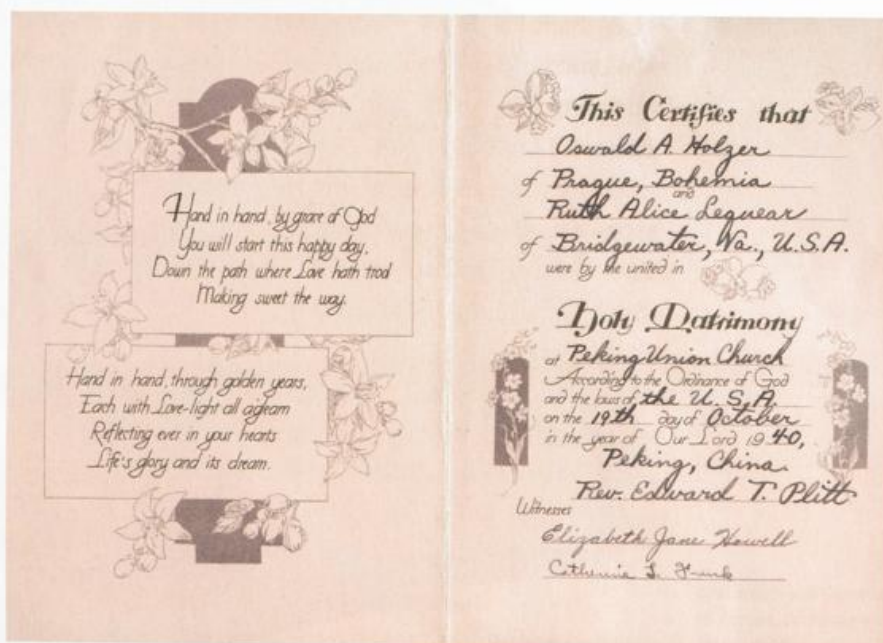 Hand in hand, by grace of God
You will start this happy day,
Down the path where Love hath trod
Making sweet the way.
Hand in hand, through golden years,
Each with Love-light all agleam
Reflecting ever in your hearts
Life's glory and its dream.
This Certifies that
Oswald A. Holzer
of Prague, Bohemia
and
Ruth Alice Lequear
of Bridgewater, Va., U.S.A.
were by me united in
Holy Matrimony
at Peking Union Church
According to the Ordinance of God
and the laws of the U.S.A.
on the 19th day of October
in the year of Our Lord 1940,
Peking, China.
Rev. Edward T. Plitt
Witnesses
Elizabeth Jane Howell
Catherine L. Funk